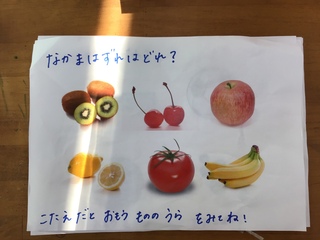 なかまはずれはどれ？
こたえだとおもうもののうらをみてね！